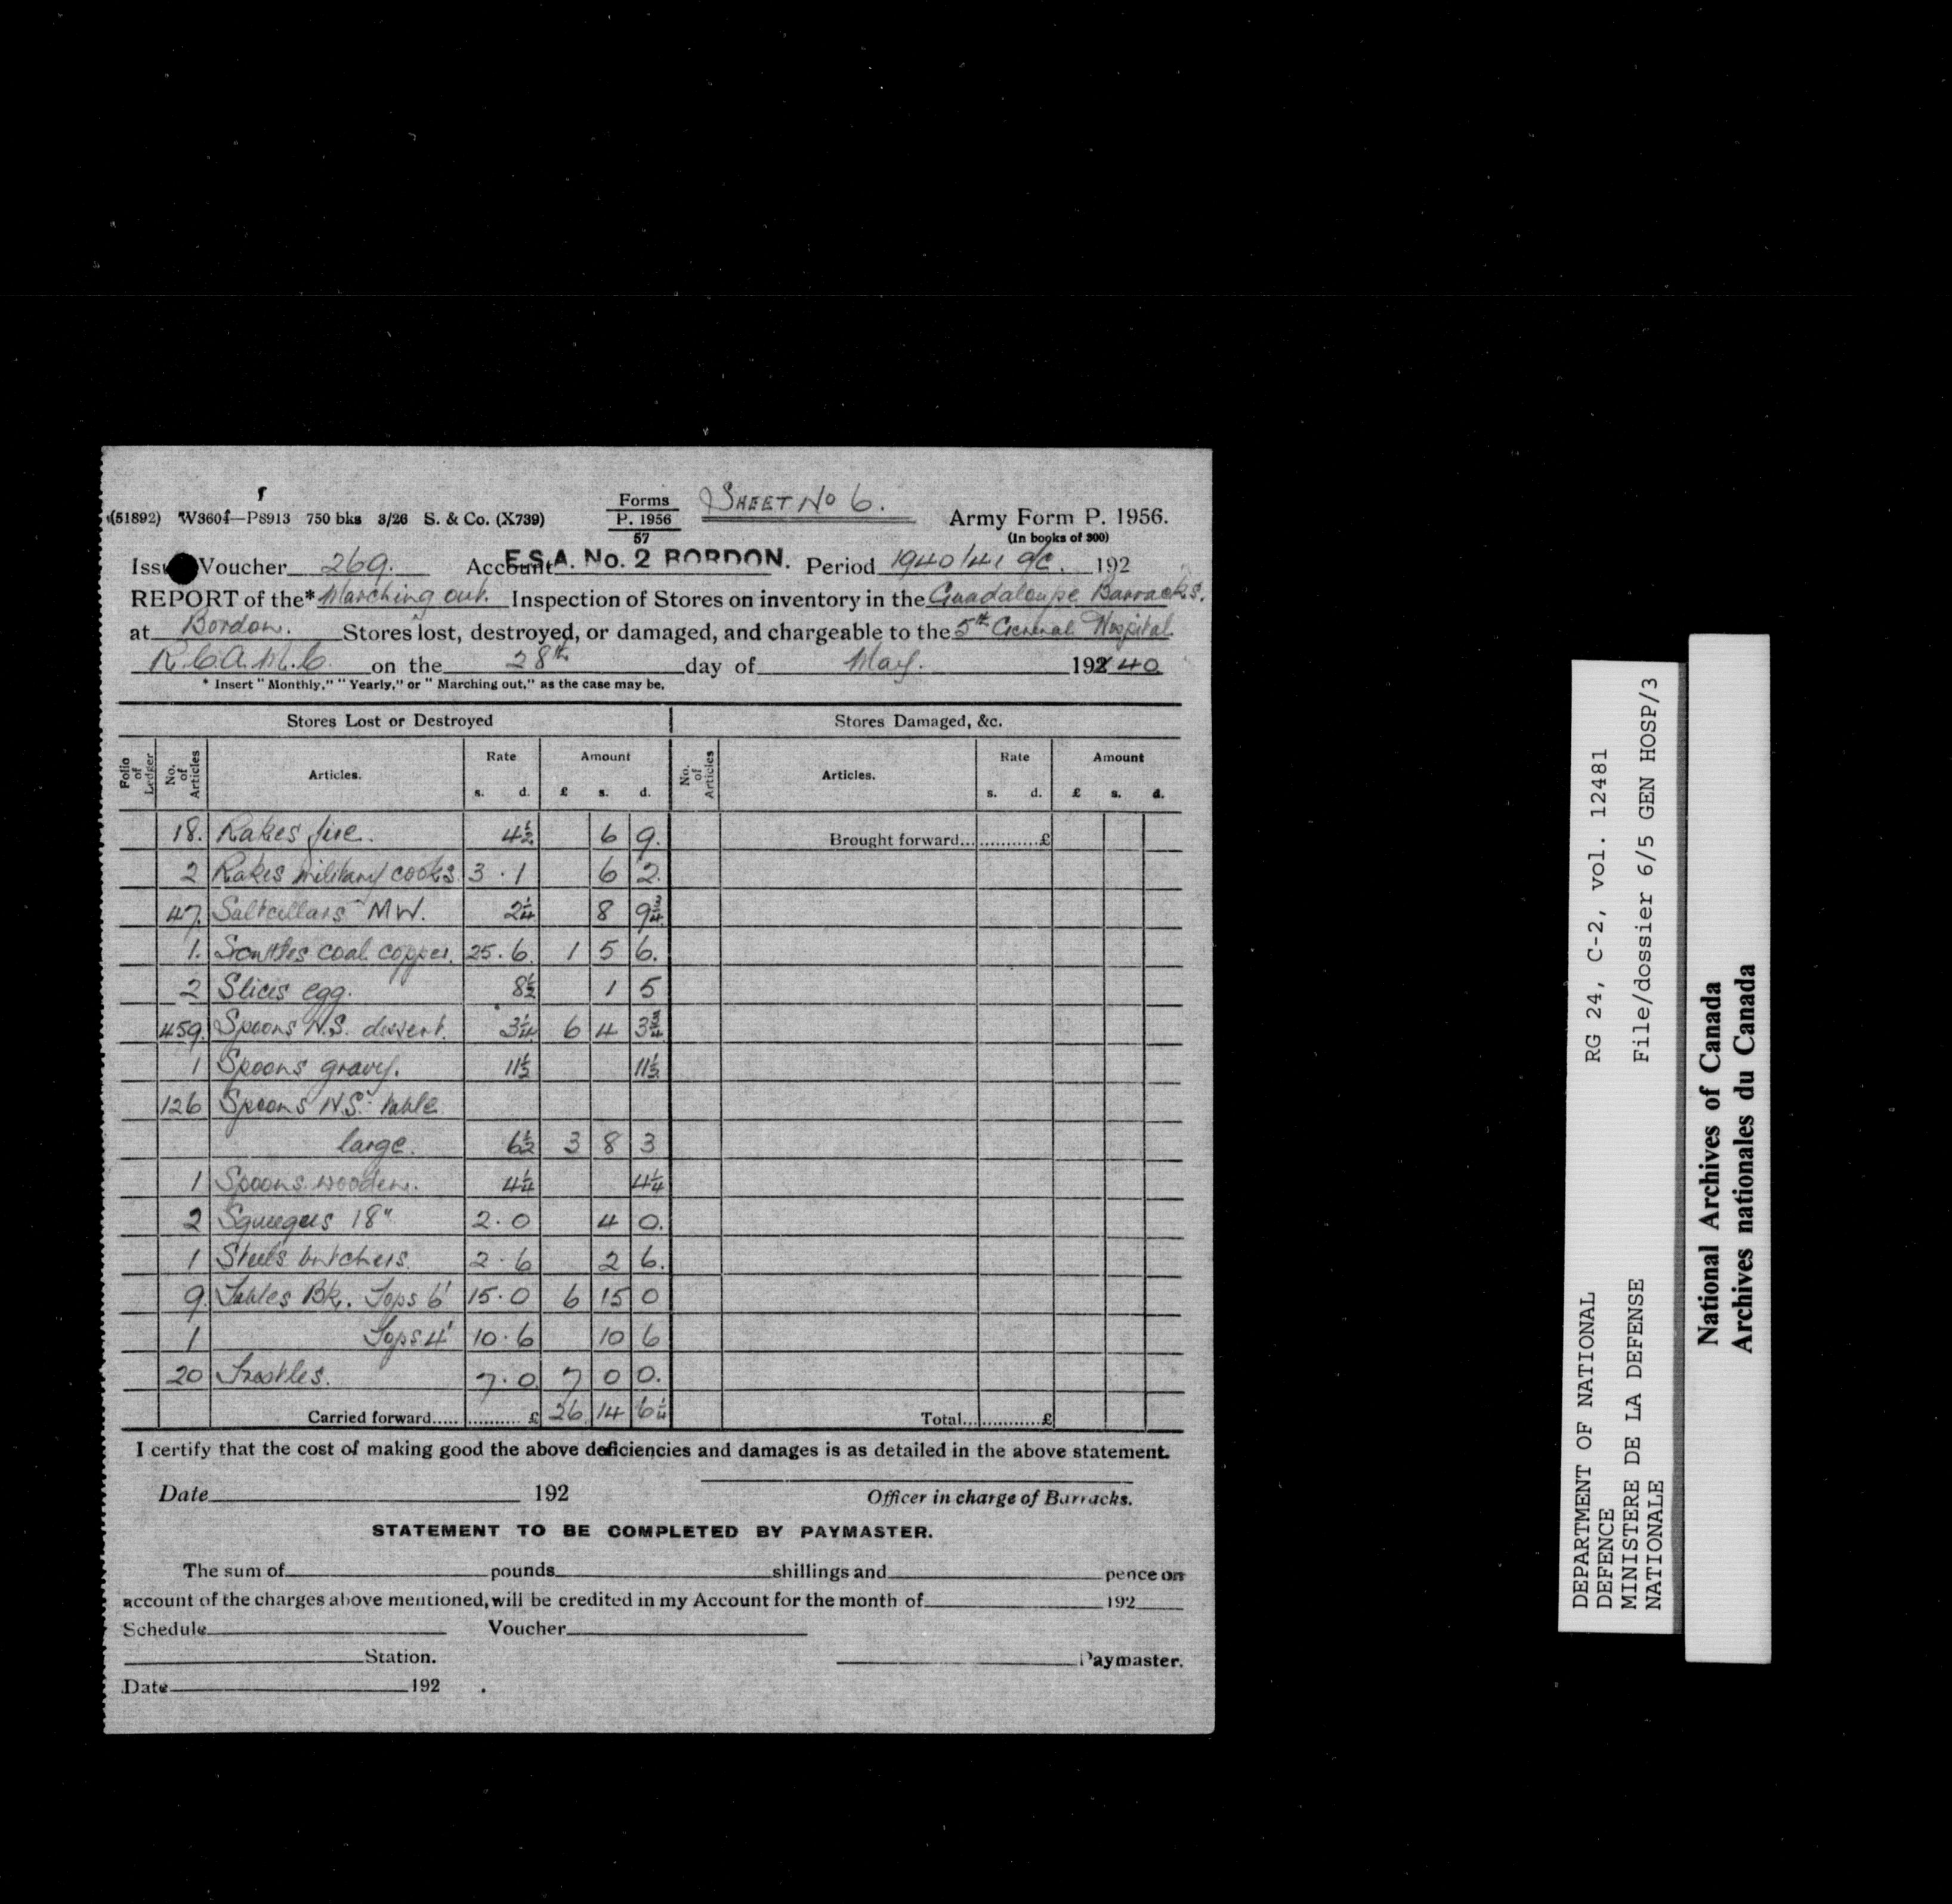 SHEET NO 6.
(51892) W3604—P8913 750 bks 3/26 S. & Co. (X739) Forms P. 1956 57 Army Form P. 1956.
(In books of 300)
Issue Voucher 269. Account E.S.A. No. 2 BORDON. Period 1940/41 a/c. 192
REPORT of the* Marching out. Inspection of Stores on inventory in the Guadaloupe Barracks.
at Bordon. Stores lost, destroyed, or damaged, and chargeable to the 5th General Hospital
R.C.A.M.C. on the 28th day of May. 192 40
* Insert "Monthly," "Yearly," or "Marching out," as the case may be.
Stores Lost or Destroyed Stores Damaged, &c.
Folio of Ledger No. of Articles Articles. Rate Amount No. of Articles Articles. Rate Amount
s. d. £ s. d. s. d. £ s. d.
18. Rakes fire. 4½ 6 9. Brought forward... £
2 Rakes military cooks. 3.1 6 2.
47. Saltcellars MW. 2¼ 8 9¾
1. Scuttles coal copper. 25.6. 1 5 6.
2 Slices egg. 8½ 1 5
459. Spoons N.S. dessert. 3¼ 6 4 3¾
1 Spoons gravy. 11½ 11½
126 Spoons N.S. table
large. 6½ 3 8 3
1 Spoons wooden. 4¼ 4¼
2 Squegees 18" 2.0 4 0.
1 Steels butchers. 2.6 2 6.
9. Tables Bk. Tops 6' 15.0 6 15 0
1 Tops 4' 10.6 10 6
20 Trestles. 7.0 7 0 0.
Carried forward..... £ 26 14 6¼ Total... £
I certify that the cost of making good the above deficiencies and damages is as detailed in the above statement.
Date 192 Officer in charge of Barracks.
STATEMENT TO BE COMPLETED BY PAYMASTER.
The sum of pounds shillings and pence on
account of the charges above mentioned, will be credited in my Account for the month of 192
Schedule Voucher
Station. Paymaster.
Date 192
DEPARTMENT OF NATIONAL RG 24, C-2, vol. 12481
DEFENCE
MINISTERE DE LA DEFENSE File/dossier 6/5 GEN HOSP/3
NATIONALE
National Archives of Canada
Archives nationales du Canada